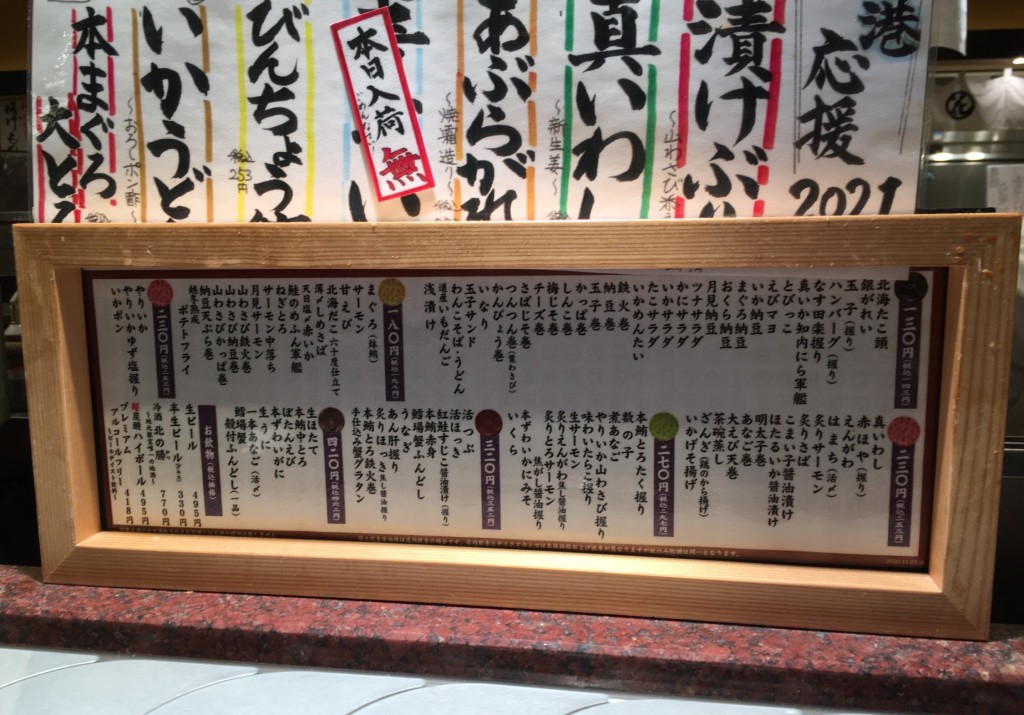 港
応援
2021
漬けぶり
〜山わさび添え
真いわし
〜新生姜〜
あぶらがれ
〜焼霜造り〜
本日入荷
無
びんちょう
税込
253
円
いかうど
〜おろしポン酢〜
本まぐろ
大とろ
一三〇円(税込一四三円)
北海たこ頭
銀がれい
玉子(握り)
ハンバーグ(握り)
なす田楽握り
真いか知内にら軍艦
とびっこ
えびマヨ
いか納豆
まぐろ納豆
おくら納豆
月見納豆
ツナサラダ
かにサラダ
いかサラダ
たこサラダ
いかめんたい
鉄火巻
納豆巻
玉子巻
かっぱ巻
しんこ巻
梅じそ巻
チーズ巻
さばじそ巻
つんつん巻(葉わさび)
かんぴょう巻
いなり
わんこそば・うどん
玉子サンド
道産いもだんご
浅漬け
一八〇円(税込一九八円)
まぐろ(鉢鮪)
サーモン
甘えび
北海だこ 六十度仕立て
薄〆しめさば
天日塩/赤いか
鮭のめふん軍艦
ねぎとろ
サーモン中落ち
月見サーモン
山わさび鉄火巻
山わさび納豆巻
山わさびかっぱ巻
納豆天ぷら巻
越冬熟成
ポテトフライ
二三〇円(税込二五三円)
やりいか
やりいかゆず塩握り
いかポン
二三〇円(税込二五三円)
真いわし
赤ほや(握り)
えんがわ
はまち(活〆)
炙りサーモン
炙りさば
こまい子醤油漬け
ほたるいか醤油漬け
明太子巻
あなご巻
大えび天巻
茶碗蒸し
ざんぎ(鶏のから揚げ)
いかげそ揚げ
二七〇円(税込二九七円)
本鮪とろたく握り
数の子
煮あなご
やりいか山わさび握り
味わいたらこ握り
生サーモン
炙りえんがわ焦し醤油握り
炙りとろサーモン
焦がし醤油握り
本ずわいかにみそ
いくら
三二〇円(税込三五二円)
活つぶ
活ほっき
紅鮭すじこ醤油漬け(握り)
本鮪赤身
鱈場蟹ふんどし
うなぎ
あん肝握り
炙りほっき焦し醤油握り
本鮪とろ鉄火巻
手仕込み蟹グラタン
四二〇円(税込四六二円)
生ほたて
本鮪中とろ
ぼたんえび
本ずわいがに
生うに
一本あなご(活〆)
鱈場蟹
殻付ふんどし(一品)
お飲物(税込価格)
生ビール 495円
半生ビール グラス 330円
冷酒 北の勝 770円
〜地元根室唯一の地酒〜
超炭酸 ハイボール 495円
プレミアム
アルコールフリー 418円
〜ビールテイスト飲料〜